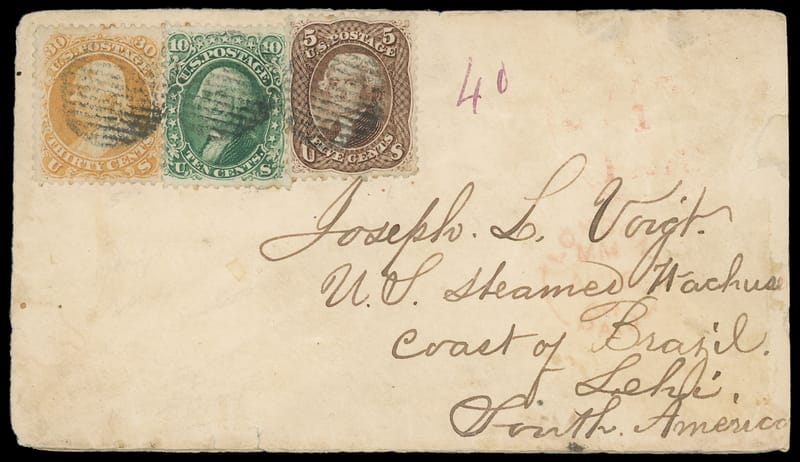 30 30
U.S. POSTAGE
THIRTY CENTS
U S
10 10
U.S. POSTAGE
TEN CENTS.
U S
5 5
U.S. POSTAGE
FIVE CENTS
U S
40
Joseph. L. Voigt.
U. S. steamed Wachuse
Coast of Brazil.
South. America